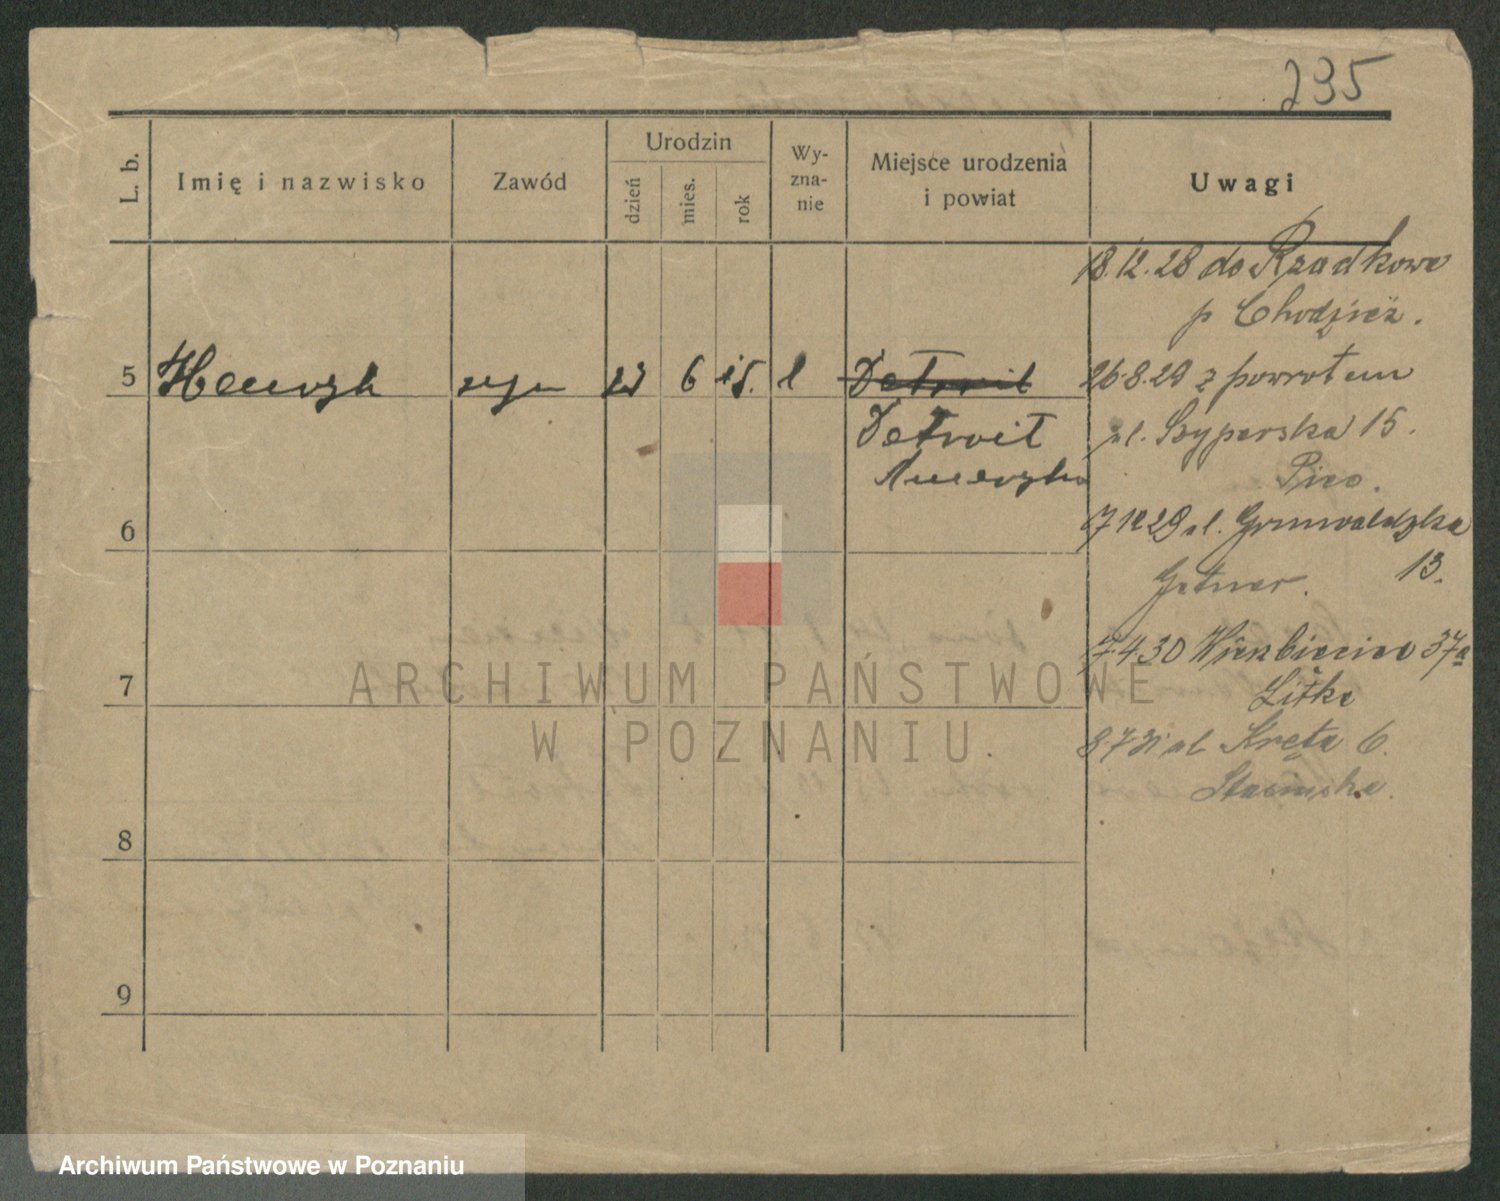 235
L. b.
Imię i nazwisko
Zawód
Urodzin
dzień
mies.
rok
Wy-
zna-
nie
Miejsce urodzenia
i powiat
Uwagi
18.12.28 do Rzadkowo
p Chodzież.
5 Henryk syn 23 6 15. k Detroit
26.8.29 z powrotem
Detroit
ul. Szyperska 15.
Ameryka
Pico.
6
17 12 29 ul. Grunwaldzka
13.
7.4.30 Wierzbięcice 37a
7
Litke
ARCHIWUM PAŃSTWOWE
W POZNANIU
8.7.31 ul Kręta 6.
8
9
Archiwum Państwowe w Poznaniu